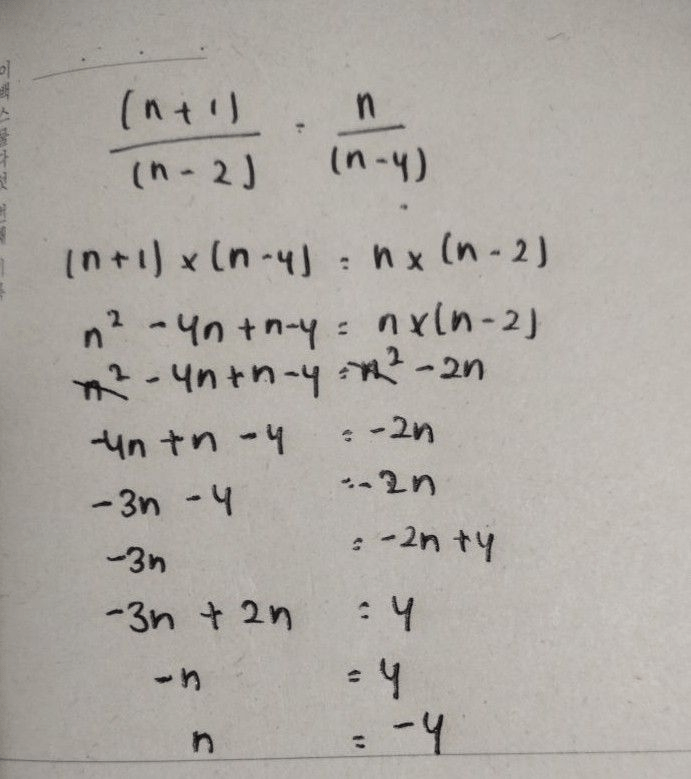 (n+1)/(n-2) = n/(n-4)
(n+1) x (n-4) = n x (n-2)
n² - 4n + n-4 = n x (n-2)
n² - 4n + n - 4 = n² - 2n
-4n + n - 4 = -2n
-3n - 4 = -2n
-3n = -2n + 4
-3n + 2n = 4
-n = 4
n = -4